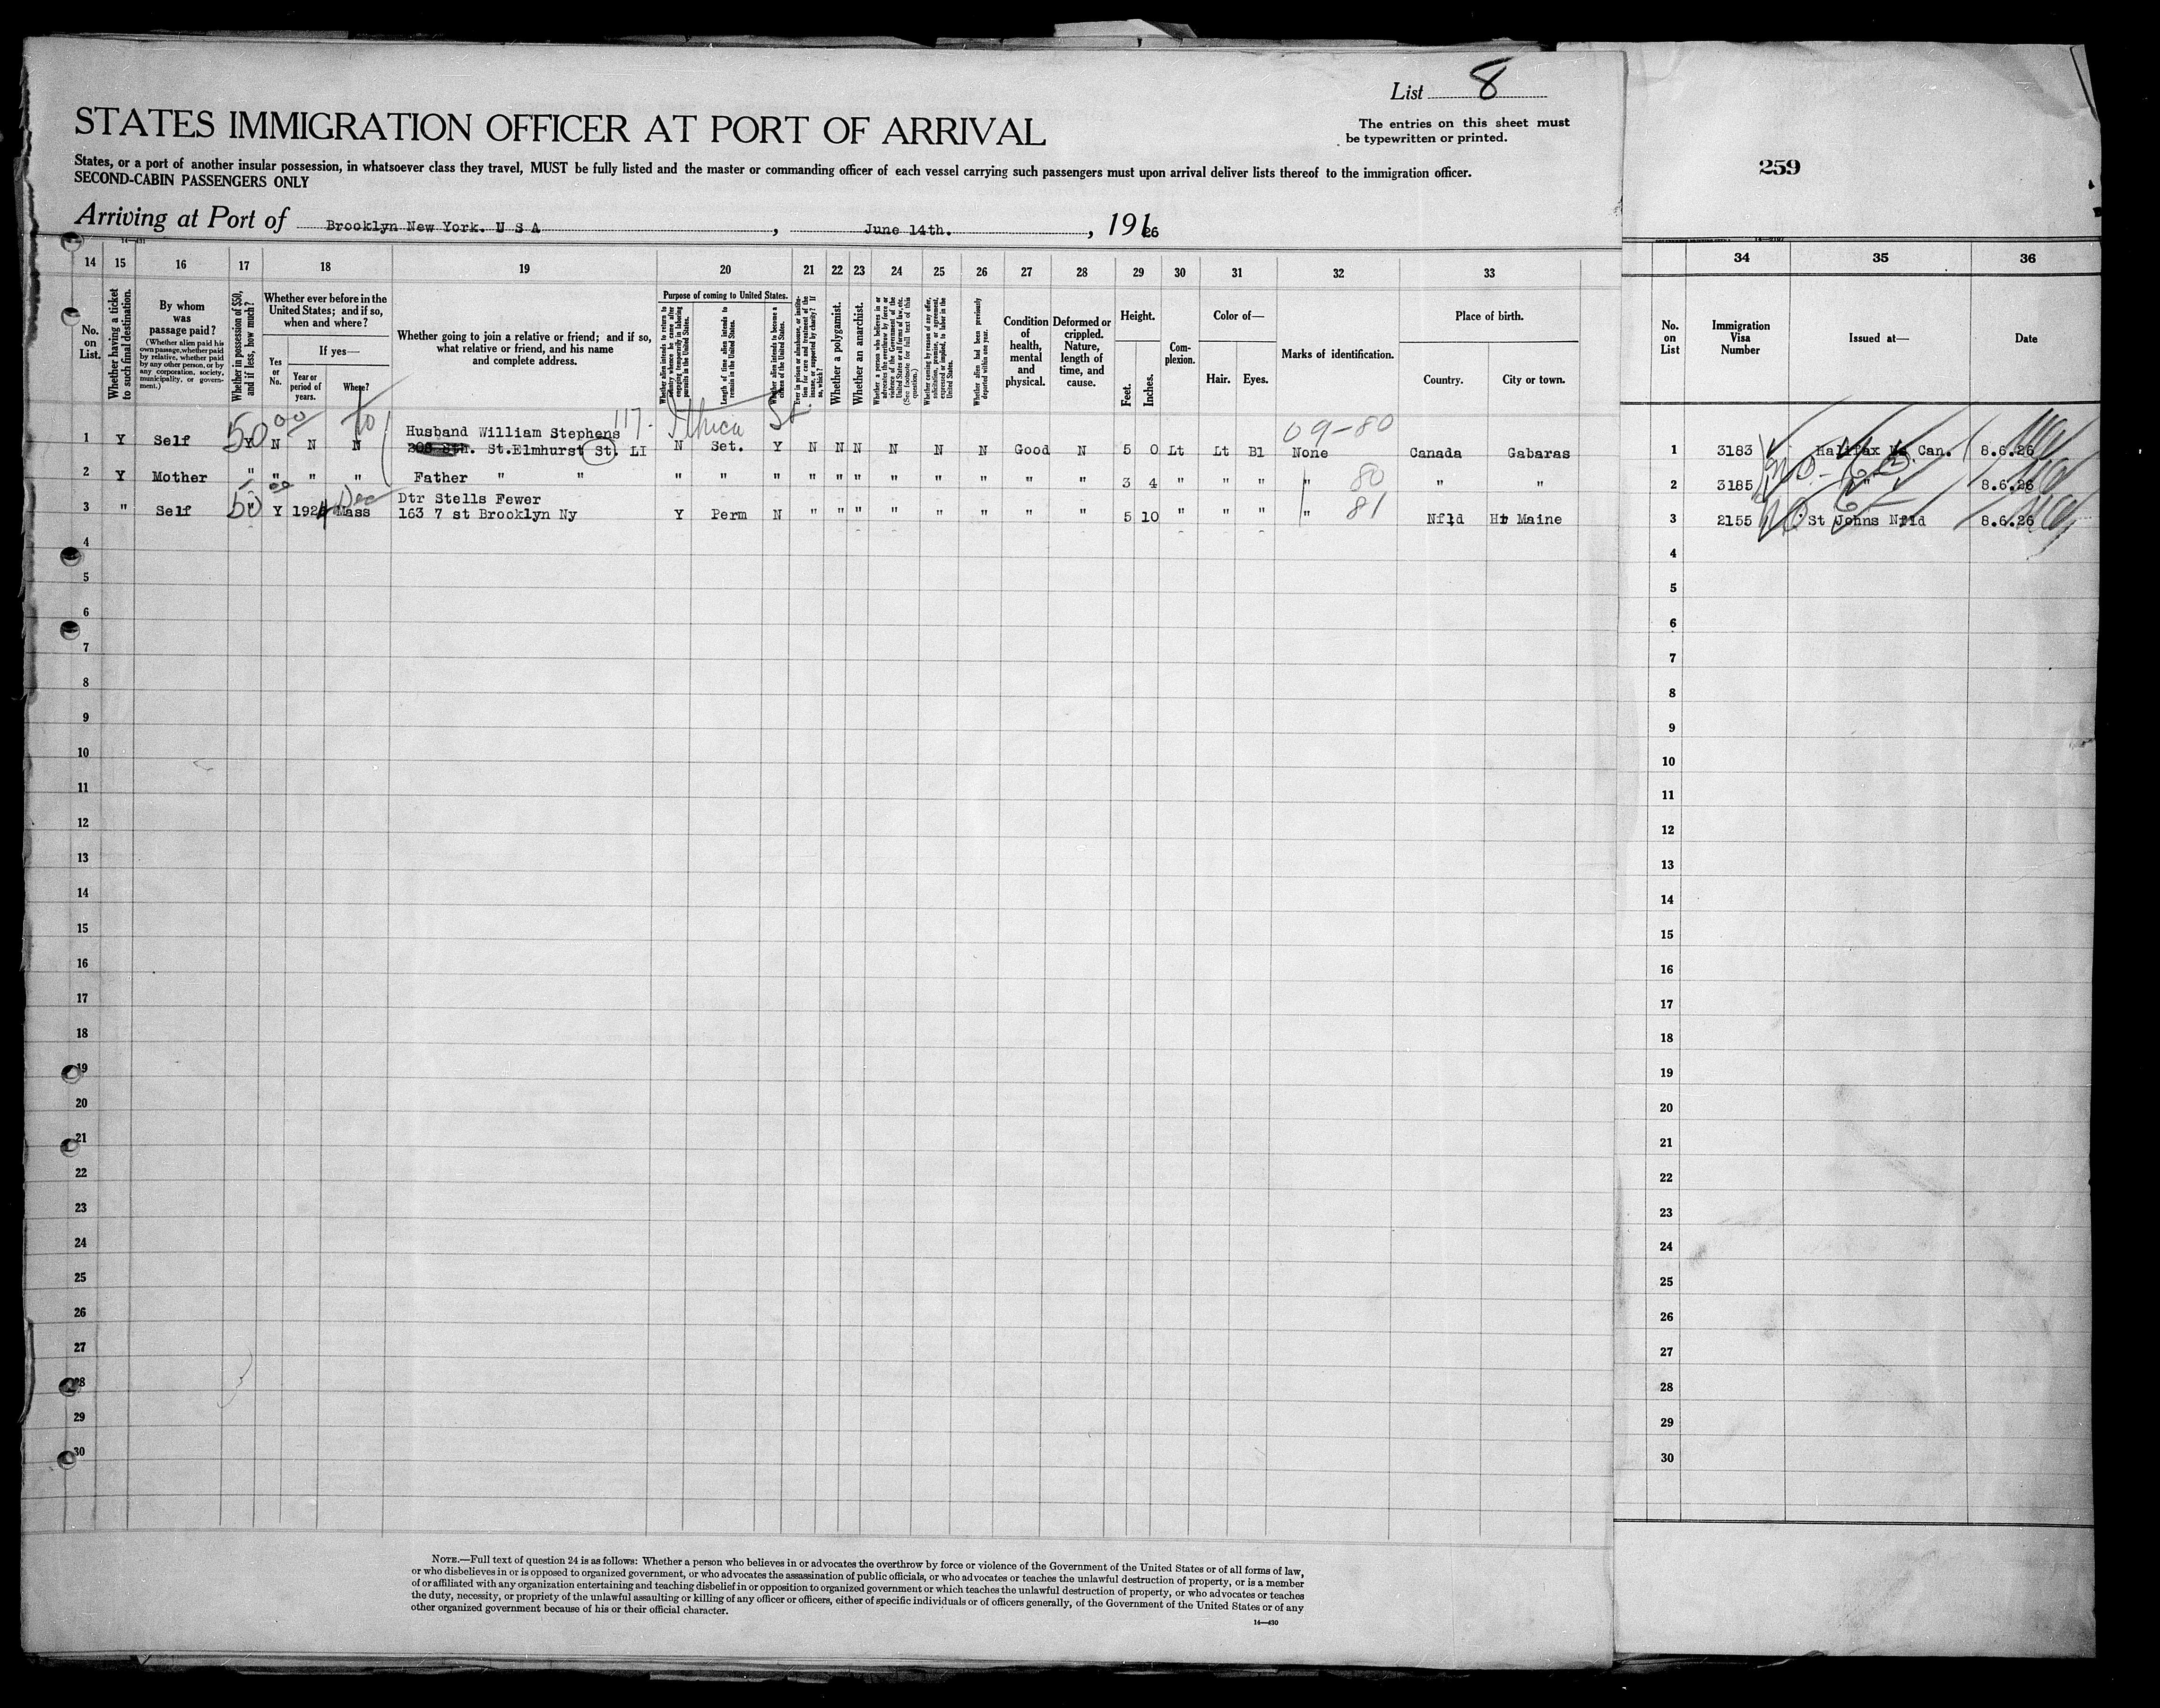 List 8
STATES IMMIGRATION OFFICER AT PORT OF ARRIVAL
The entries on this sheet must
be typewritten or printed.
259
States, or a port of another insular possession, in whatsoever class they travel, MUST be fully listed and the master or commanding officer of each vessel carrying such passengers must upon arrival deliver lists thereof to the immigration officer.
SECOND-CABIN PASSENGERS ONLY
Arriving at Port of Brooklyn New York. U S A , June 14th. , 1926
14 15 16 17 18 19 20 21 22 23 24 25 26 27 28 29 30 31 32 33 34 35 36
No. on List.
Whether having a ticket to such final destination.
By whom was passage paid?
(Whether alien paid his own passage, whether paid by relative, whether paid by any other person, or by any corporation, society, municipality, or government.)
Whether in possession of $50, and if less, how much?
Whether ever before in the United States; and if so, when and where?
Yes or No.
If yes—
Year or period of years.
Where?
Whether going to join a relative or friend; and if so, what relative or friend, and his name and complete address.
Purpose of coming to United States.
Length of time alien intends to remain in the United States.
Whether alien intends to become a citizen of the United States.
Whether a polygamist.
Whether an anarchist.
Whether alien had been previously deported within one year.
Condition of health, mental and physical.
Deformed or crippled. Nature, length of time, and cause.
Height.
Feet.
Inches.
Complexion.
Color of—
Hair.
Eyes.
Marks of identification.
Place of birth.
Country.
City or town.
No. on List
Immigration Visa Number
Issued at—
Date
50 00 117- Ithica St 09-80
Husband William Stephens
1 Y Self Y N N N St. Elmhurst St. LI N Set. Y N N N N N N Good N 5 0 Lt Lt Bl None Canada Gabaras 1 3183 Halifax Ns Can. 8.6.26
2 Y Mother " " " " Father " " " " " " " " " " " " " 3 4 " " " " 80 " " 2 3185 " " 8.6.26
50 Dec Dtr Stells Fewer
3 " Self Y Mass 163 7 st Brooklyn Ny Y Perm N " " " " " " " " 5 10 " " " " 81 Nfld Hr Maine 3 2155 St Johns Nfld 8.6.26
4 4
5 5
6 6
7 7
8 8
9 9
10 10
11 11
12 12
13 13
14 14
15 15
16 16
17 17
18 18
19 19
20 20
21 21
22 22
23 23
24 24
25 25
26 26
27 27
28 28
29 29
30 30
NOTE.—Full text of question 24 is as follows: Whether a person who believes in or advocates the overthrow by force or violence of the Government of the United States or of all forms of law,
or who disbelieves in or is opposed to organized government, or who advocates the assassination of public officials, or who advocates or teaches the unlawful destruction of property, or is a member
of or affiliated with any organization entertaining and teaching disbelief in or opposition to organized government or which teaches the unlawful destruction of property, or who advocates or teaches
the duty, necessity, or propriety of the unlawful assaulting or killing of any officer or officers, either of specific individuals or of officers generally, of the Government of the United States or of any
other organized government because of his or their official character.
14—430